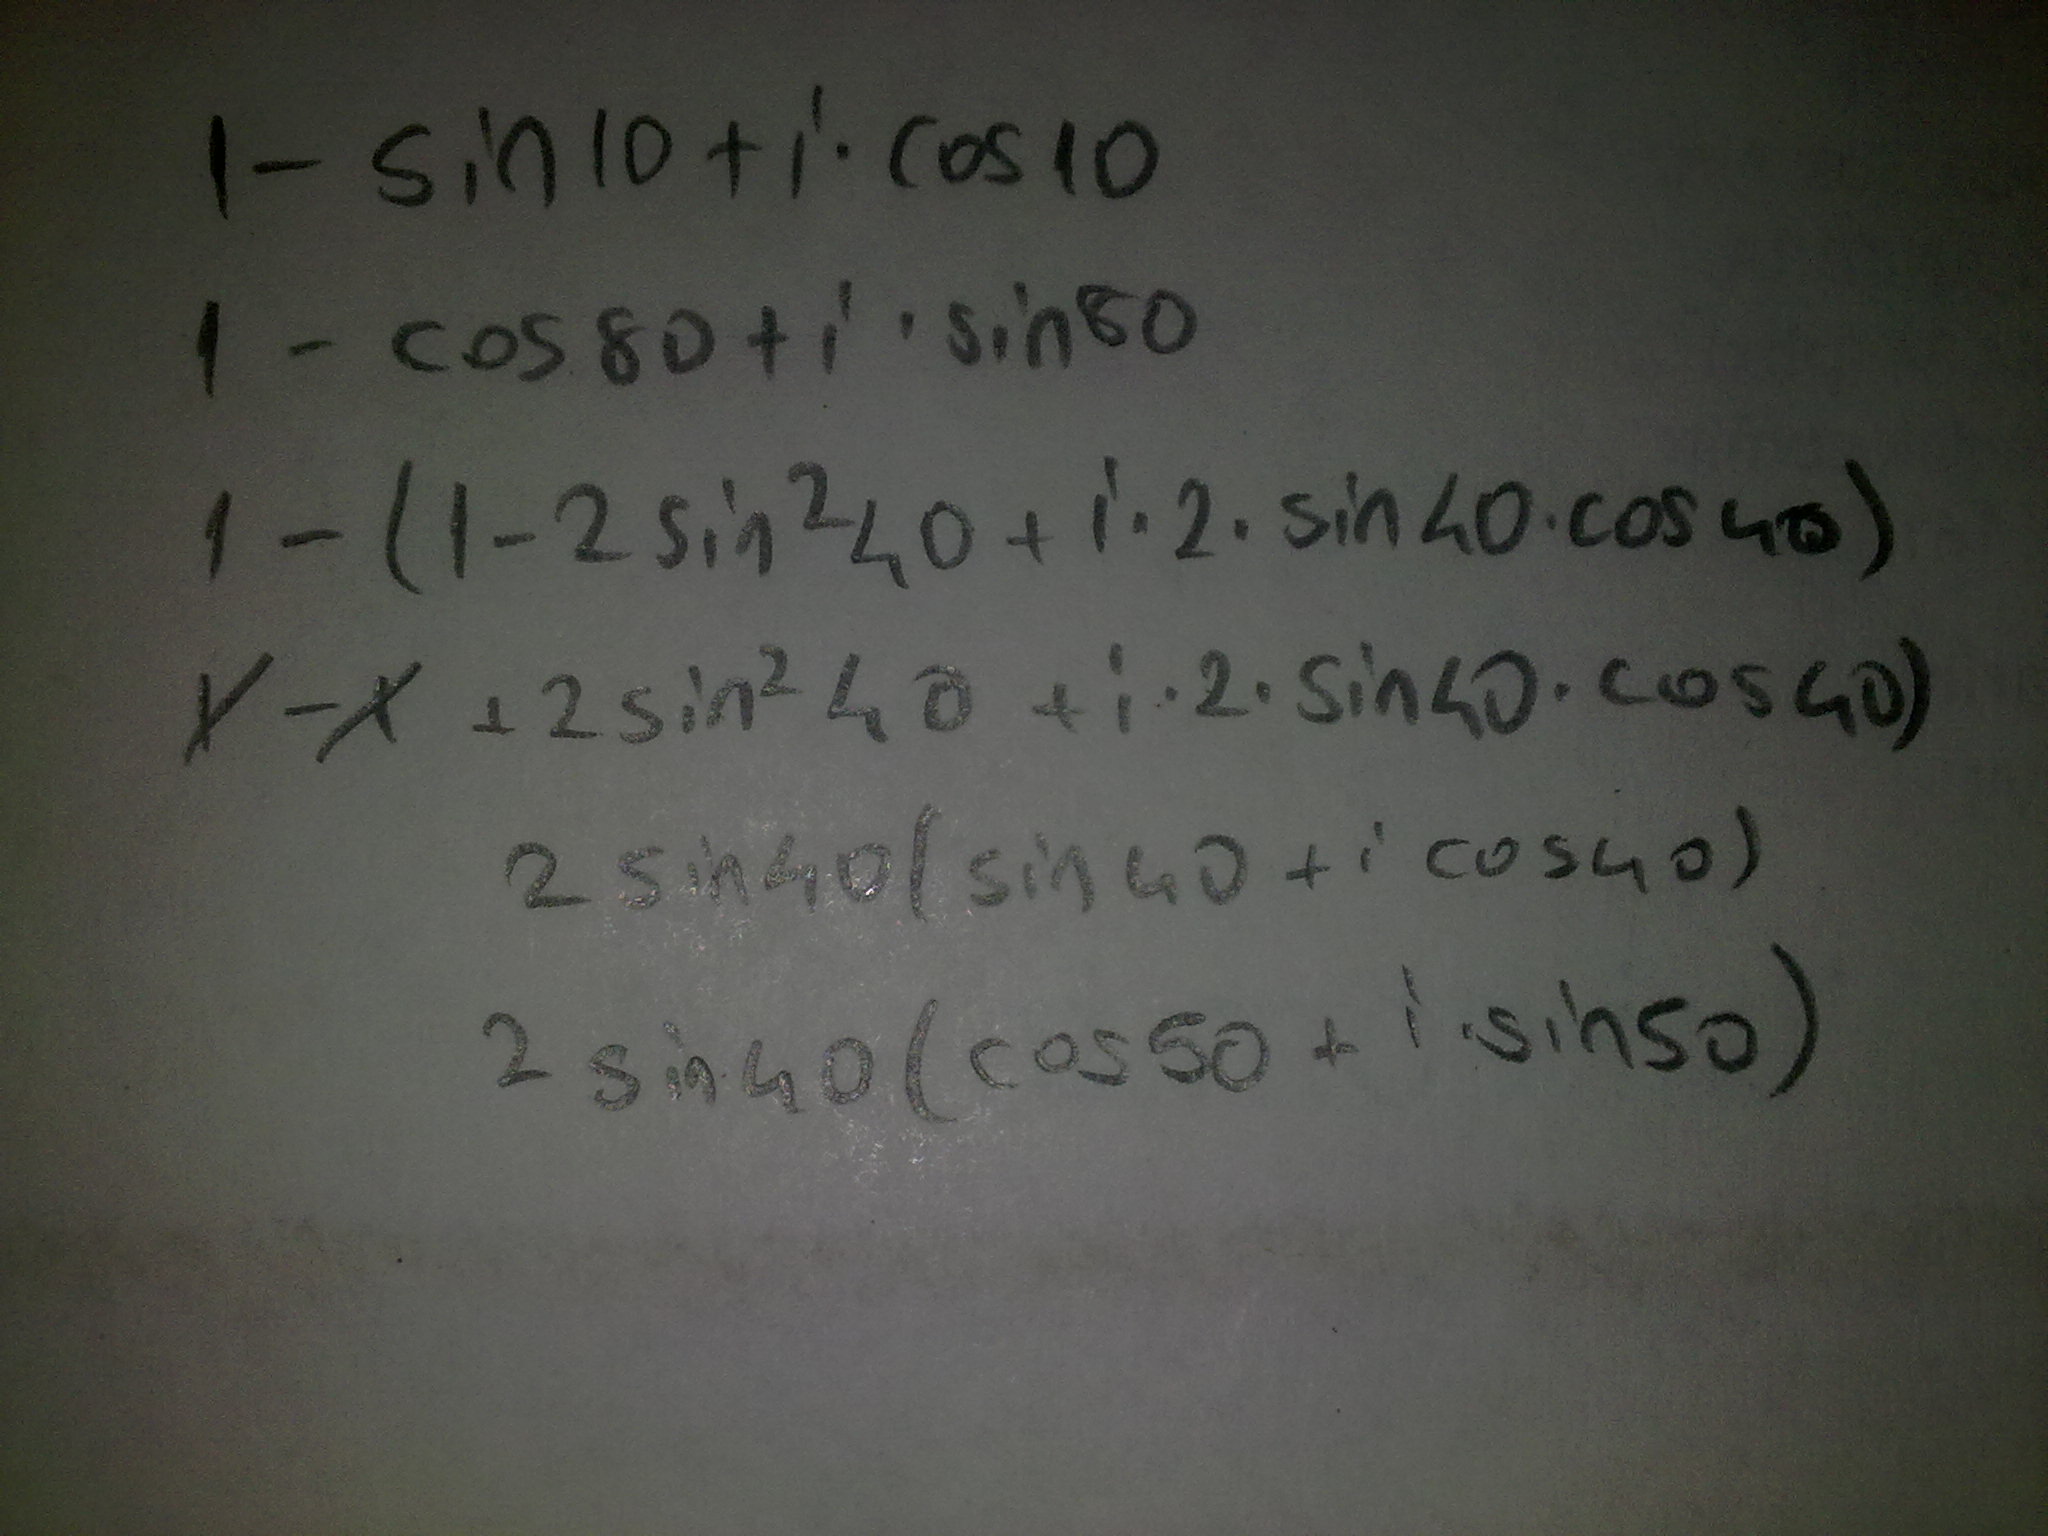 1 - sin10 + i · cos10
1 - cos80 + i · sin80
1 - (1 - 2 sin²40 + i · 2 · sin40 · cos40)
1 - 1 + 2 sin²40 + i · 2 · sin40 · cos40)
2 sin40 (sin40 + i cos40)
2 sin40 (cos50 + i · sin50)